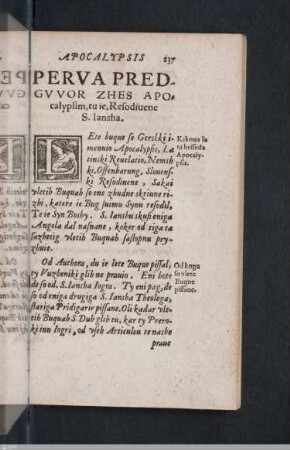 APOCALYPSIS 237
PERVA PRED-
GVVOR ZHES APO-
calypsim, tu ie, Resodiuene
S. Iansha.
LEte buque so Gerski i-
mennio Apocalypsis, La
tinski Reuelatio, Nemsh
ki, Offenbarung, Slouen-
ski Resodiuene, Sakai
vletih Buquah so one zhudne skriune ri-
zhi, katere ie Bug suimu Synu resodil,
Te ie Syn Boshy. S. Ianshu skusi eniga
Angela dal nasnane, koker od tiga ta
sazhetig vletih Buquah sastopnu pry-
zhuie.
Kakoua ie
ta besseda
Apocaly-
psis.
Od Auchora, du ie lete Buque pissal,
ty Vuzheniki glih ne prauio. Eni hote
de so od. S. Iansha Iogra. Ty eni pag, de
so od eniga drugiga S. Iansha Theologa,
stariga Pridigarie pissane. Oli kadar vle-
tih Buquah S. Duh glih tu, kar ty Prero-
ki inu Iogri, od vseh Articulou te nashe
praue
Od koga
so vlete
Buque
pissane.